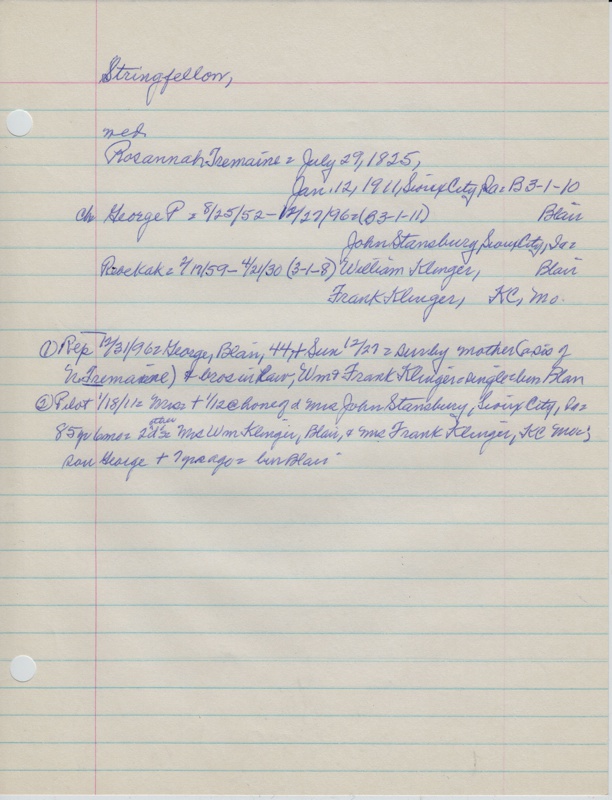 Stringfellow,
med
Rosannah Tremaine = July 29, 1825,
Jan. 12, 1911, Sioux City, Ia = B 3-1-10
ch George P = 8/25/52 - 12/27/96 = (B3-1-11) Blair
John Stansbury, Sioux City, Ia =
7/17/59 - 4/21/30 (3-1-8) William Klinger, Blair
Frank Klinger, KC, Mo.
① Rep 12/31/96 = George, Blair, 44, + Sun 12/27 = surv by mother (a sis of
Tremaine) + bros in law, Wm + Frank Klinger = single = bur Blair
② Pilot 1/18/11 = Mrs = + 1/12 @ home of d Mrs John Stansbury, Sioux City, Ia =
85 = 2 other d's = Mrs Wm Klinger, Blair, + Mrs Frank Klinger, KC Mo = ;
son George + ago = bur Blair